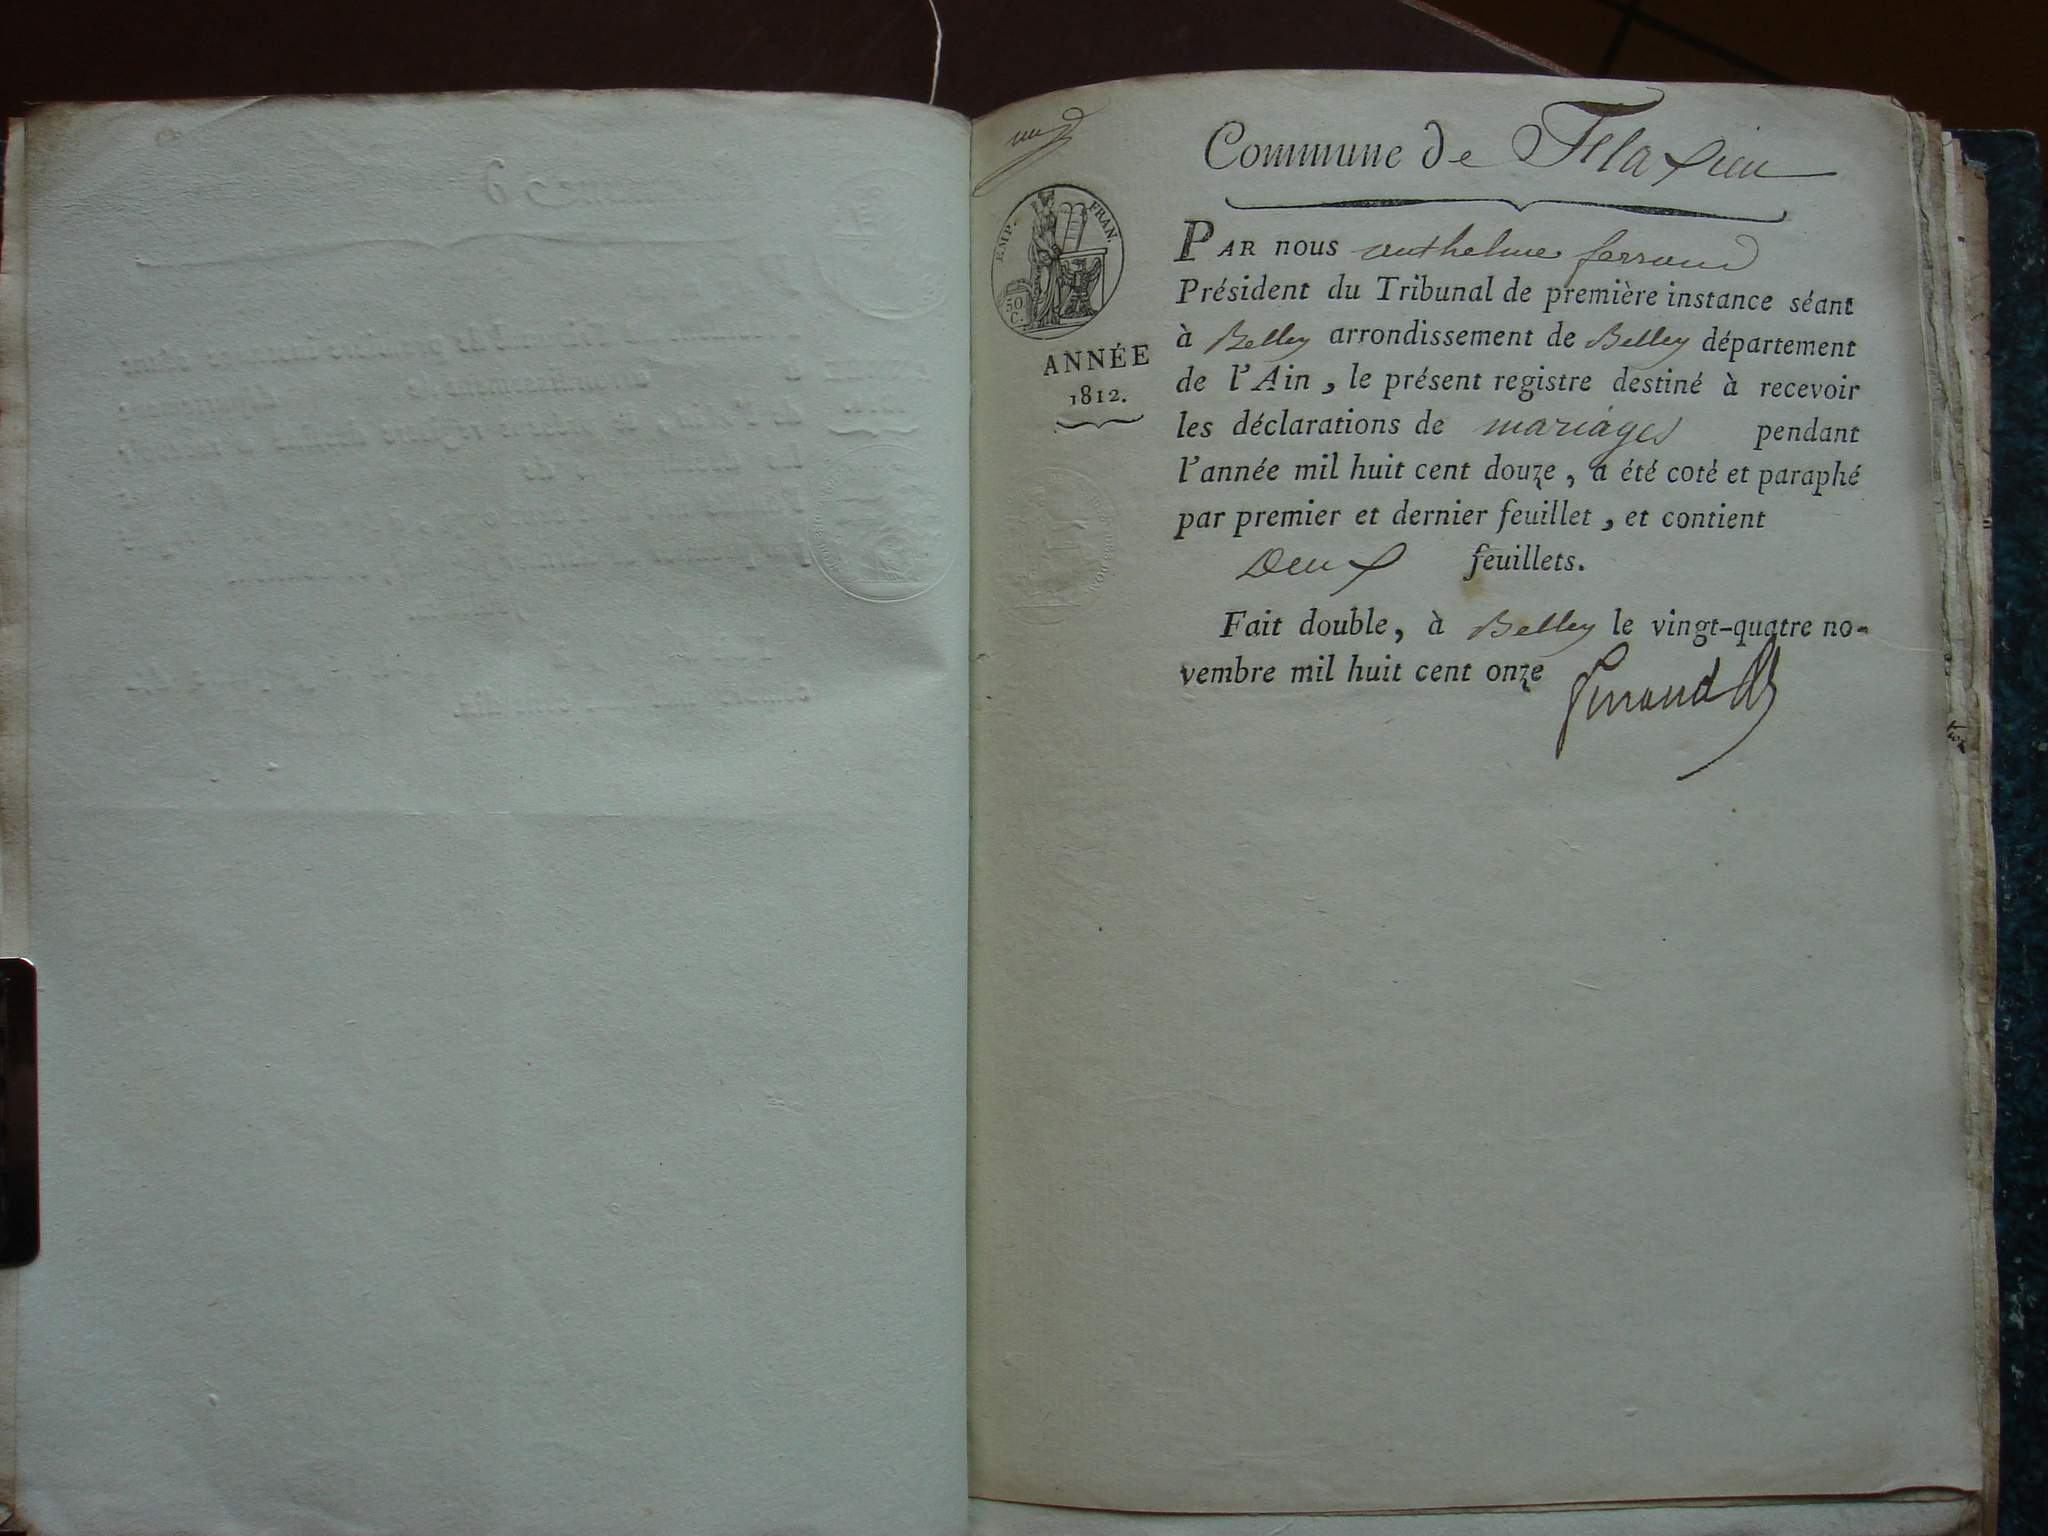 Commune de Flaxieu
EMP. FRAN.
50
C.
ANNÉE
1812.
PAR nous anthelme ferrand
Président du Tribunal de première instance séant
à Belley arrondissement de Belley département
de l'Ain, le présent registre destiné à recevoir
les déclarations de mariages pendant
l'année mil huit cent douze, a été coté et paraphé
par premier et dernier feuillet, et contient
Deux feuillets.
Fait double, à Belley le vingt-quatre no-
vembre mil huit cent onze
ferrand